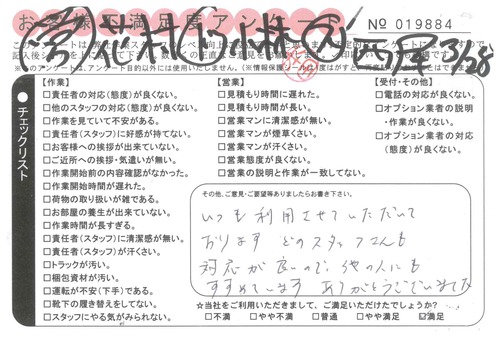 お客様満足度アンケート
№ 019884
西尾 3/28
チェックリスト
【作業】
□責任者の対応(態度)が良くない。
□他のスタッフの対応(態度)が良くない。
□作業を見ていて不安がある。
□責任者(スタッフ)に好感が持てない。
□お客様への挨拶が出来ていない。
□ご近所への挨拶・気遣いが無い。
□作業開始前の内容確認がなかった。
□作業開始時間が遅れた。
□荷物の取り扱いが雑である。
□お部屋の養生が出来ていない。
□作業時間が長すぎる。
□責任者(スタッフ)に清潔感が無い。
□責任者(スタッフ)が汗くさい。
□トラックが汚い。
□梱包資材が汚い。
□運転が不安(下手)である。
□靴下の履き替えをしてない。
□スタッフにやる気がみられない。
【営業】
□見積もり時間に遅れた。
□見積もり時間が長い。
□営業マンに清潔感が無い。
□営業マンが煙草くさい。
□営業マンが汗くさい。
□営業態度が良くない。
□営業の説明と作業が一致してない。
【受付・その他】
□電話の対応が良くない。
□オプション業者の説明
・作業が良くない。
□オプション業者の対応
(態度)が良くない。
その他、ご意見・ご要望等ありましたらお書き下さい。
いつも利用させていただいて
おります どのスタッフさんも
対応が良いので、他の人にも
すすめています ありがとうございました
☆当社をご利用いただきまして、ご満足いただけたでしょうか?
□不満 □やや不満 □普通 □やや満足 ☑満足